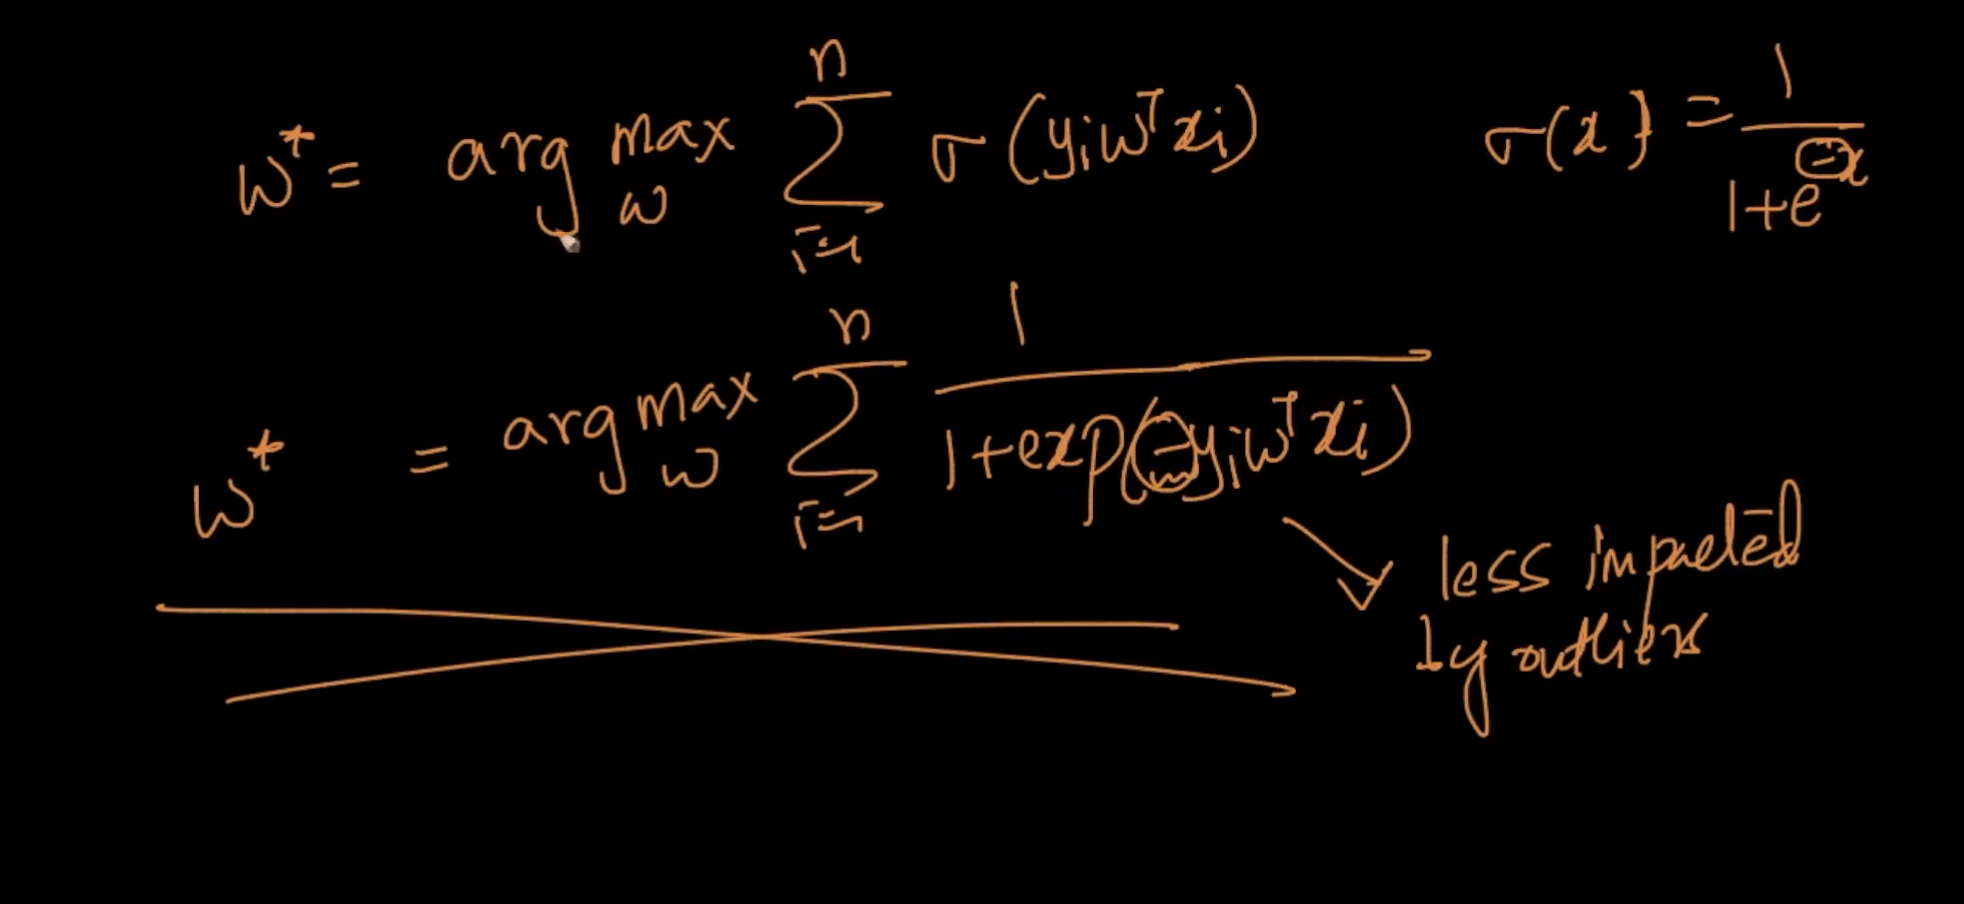 w* = arg max_w Σ_{i=1}^{n} σ(y_i w^T x_i)    σ(x) = 1/(1+e^{-x})
w* = arg max_w Σ_{i=1}^{n} 1/(1+exp(-y_i w^T x_i))
less impacted
by outliers